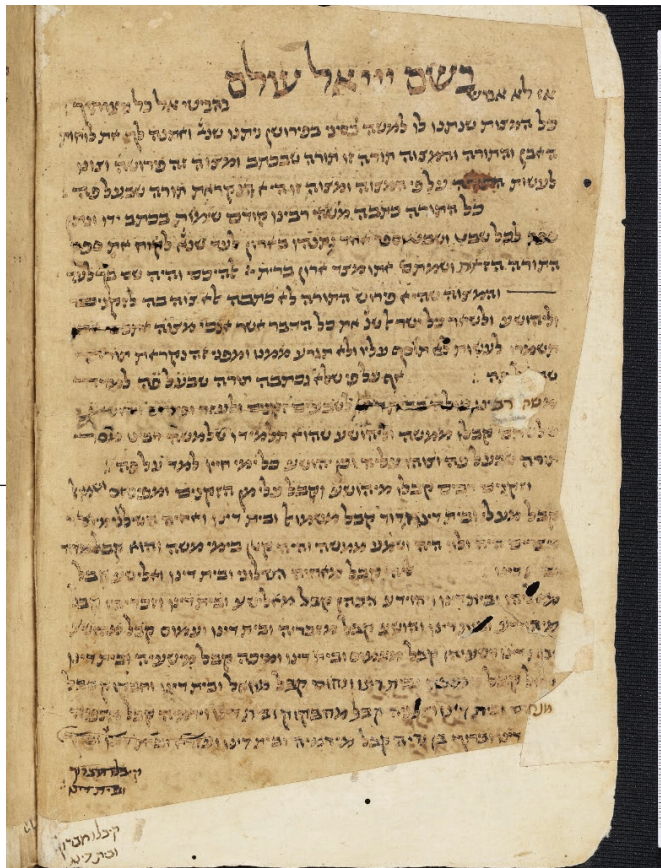 בשם ייי אל עולם
אז לא אבוש בהביטי אל כל מצותיך
כל המצות שנתנו לו למשה בסיני בפירושן ניתנו שנ' ואתנה לך את לוחות
האבן והתורה והמצוה תורה זו תורה שבכתב ומצוה זה פירושה וצונו
לעשות התורה על פי המצוה ומצוה זו היא הנקראת תורה שבעל פה
כל התורה כתבה משה רבינו קודם שימות בכתב ידו ונתן
ספר לכל שבט ושבט וספר אחד נתנהו בארון לעד שנ' לקוח את ספר
התורה הזאת ושמתם אותו מצד ארון ברית יי' אלהיכם והיה שם בך לעד
והמצוה שהיא פירוש התורה לא כתבה אלא צוה בה לזקנים
וליהושע ולשאר כל ישראל שנ' את כל הדבר אשר אנכי מצוה אתכם אתו
תשמרו לעשות לא תוסף עליו ולא תגרע ממנו ומפני זה נקראת תורה
שבעל פה אף על פי שלא נכתבה תורה שבעל פה למדה
משה רבינו לשבעים זקנים ולעזר ופינחס ויהושע
שלשתם קבלו ממשה וליהושע שהוא תלמידו שלמשה רבינו מסר
תורה שבעל פה וצוהו עליה וכן יהושע כל ימי חייו למד על פה
וזקנים רבים קבלו מיהושע וקבל עלי מן הזקנים ומפינחס ושמואל
קבל מעלי ובית דינו ודוד קבל משמואל ובית דינו ואחיה השילני מיוצאי
מצרים היה ולוי היה ושמע ממשה והיה קטן בימי משה והוא קבל מדוד
ובית דינו אליהו קבל מאחיה השלוני ובית דינו ואלישע קבל
מאליהו ובית דינו ויהוידע הכהן קבל מאלישע ובית דינו וזכריהו קבל
מיהוידע ובית דינו והושע קבל מזכריה ובית דינו ועמוס קבל מהושע
ובית דינו וישעיהו קבל מעמוס ובית דינו ומיכה קבל מישעיה ובית דינו
ויואל קבל ממיכה ובית דינו ונחום קבל מיואל ובית דינו וחבקוק קבל
מנחום ובית דינו וצפניה קבל מחבקוק ובית דינו וירמיה קבל מצפניה
ובית דינו וברוך בן נריה קבל מירמיה ובית דינו ועזרא ובית דינו
קיבלו מברוך
ובית דינו
קיבלו מברוך
ובית דינו